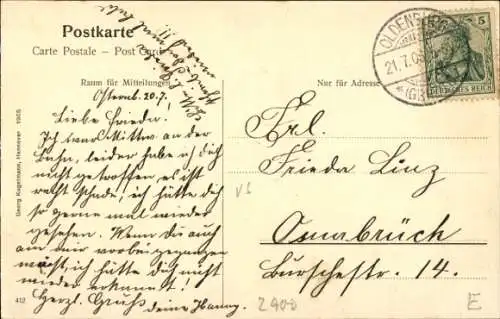 Postkarte
Carte Postale – Post Card
Raum für Mitteilungen
Nur für Adresse
Osternb. 20.7.
Liebe Frieda!
Ich war Mittw. an der
Bahn, leider habe ich dich
nicht getroffen, es ist
recht schade, ich hätte dich
so gerne mal wieder
gesehen. Wenn du auch
an mir vorbeigegangen
, ich hätte dich nicht
wieder erkannt!
Herzl. Gruß
deine Hanny.
OLDENBURG
21.7.0
(GR
5
DEUTSCHES REICH
Frl.
Frieda Linz
Osnabrück
Burschestr. 14.
Georg Kugelmann, Hannover 1905
412
2900
E